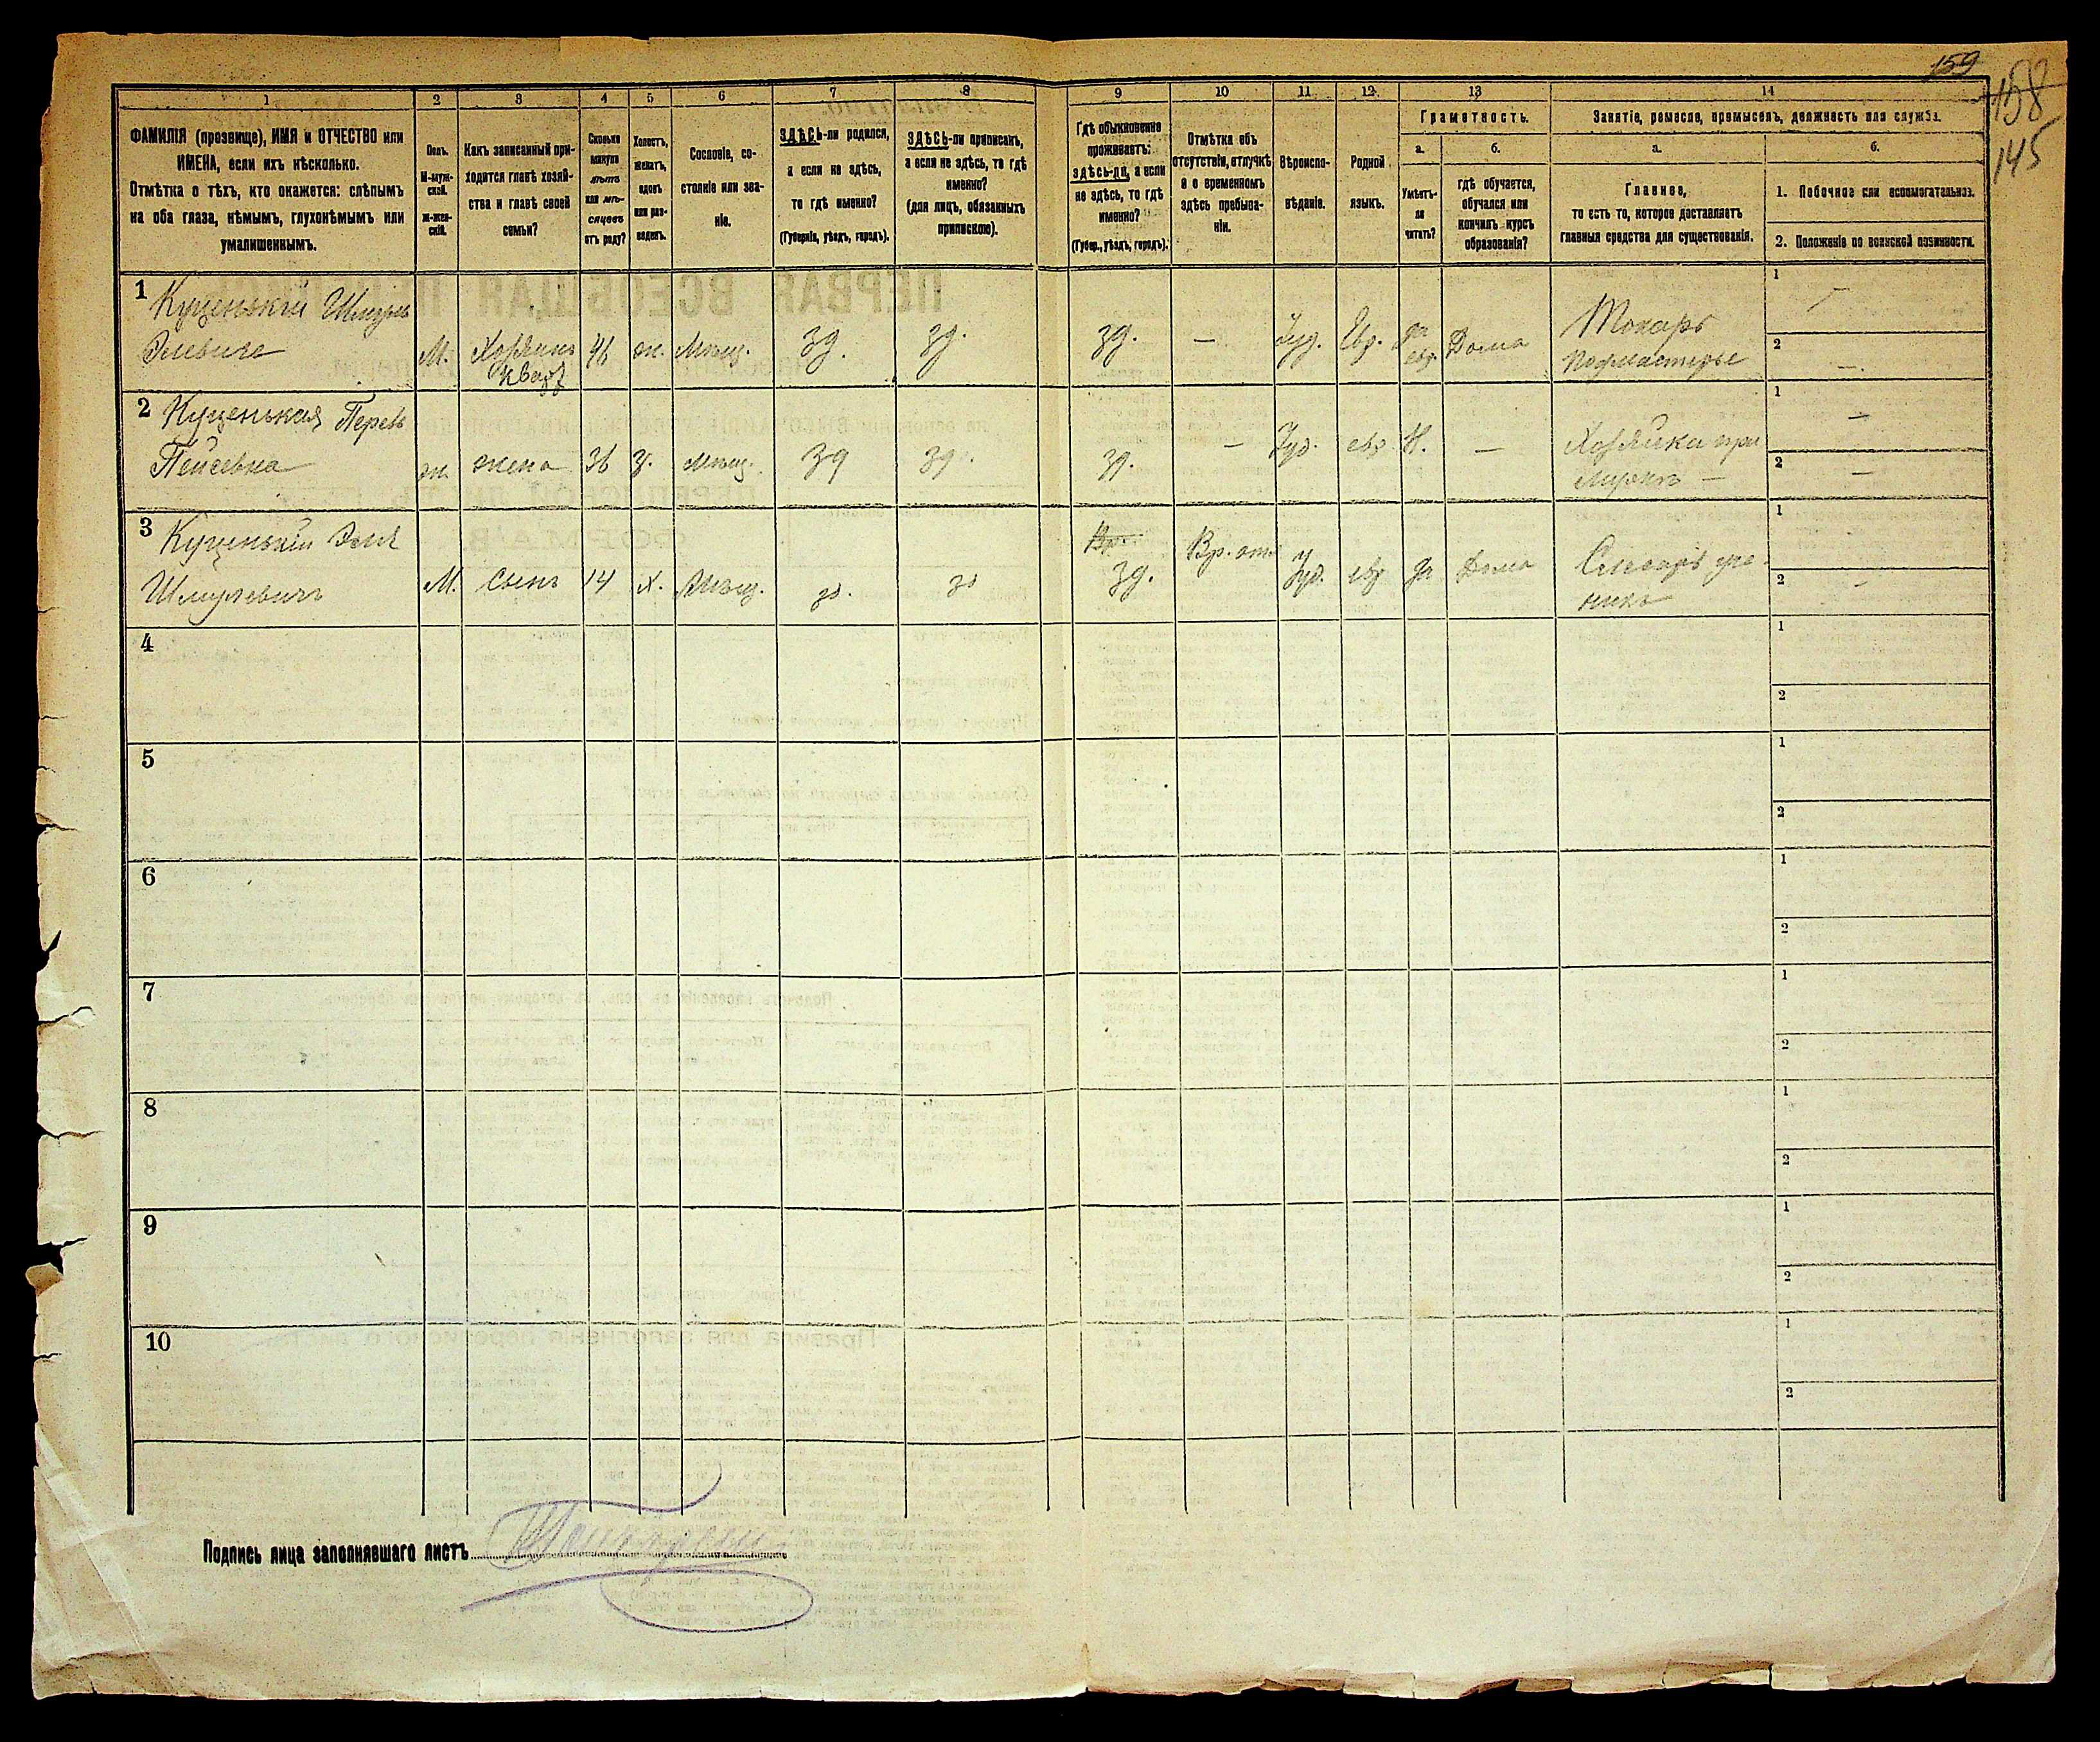 159
158
145
1
2
3
4
5
6
7
8
9
10
11
12
13
14
ФАМИЛІЯ (прозвище), ИМЯ и ОТЧЕСТВО или
ИМЕНА, если ихъ нѣсколько.
Отмѣтка о тѣхъ, кто окажется: слѣпымъ
на оба глаза, нѣмымъ, глухонѣмымъ или
умалишеннымъ.
Полъ.
М-муж-
ской.
ж-жен-
скій.
Какъ записанный при-
ходится главѣ хозяй-
ства и главѣ своей
семьи?
Сколько
минуло
лѣтъ
или мѣ-
сяцевъ
отъ роду?
Холостъ,
женатъ,
вдовъ
или раз-
веденъ.
Сословіе, со-
стояніе или зва-
ніе.
ЗДѢСЬ-ли родился,
а если не здѣсь,
то гдѣ именно?
(Губернія, уѣздъ, городъ).
ЗДѢСЬ-ли приписанъ,
а если не здѣсь, то гдѣ
именно?
(для лицъ, обязанныхъ
припискою).
Гдѣ обыкновенно
проживаетъ:
здѣсь-ли, а если
не здѣсь, то гдѣ
именно?
(Губер., уѣздъ, городъ).
Отмѣтка объ
отсутствіи, отлучкѣ
и о временномъ
здѣсь пребыва-
ніи.
Вѣроиспо-
вѣданіе.
Родной
языкъ.
Грамотность.
а.
Умѣетъ-
ли
читать?
б.
гдѣ обучается,
обучался или
кончилъ курсъ
образованія?
Занятіе, ремесло, промыселъ, должность или служба.
а.
Главное,
то есть то, которое доставляетъ
главныя средства для существованія.
б.
1. Побочное или вспомогательное.
2. Положеніе по воинской повинности.
1 Куценькій Шмуль
Элевичъ М. Хозяинъ кварт 46 ж. Мѣщ. зд. зд. зд. — Іуд. Евр. да евр. Дома Токарь
подмастерье 1 — 2 —
2 Куценькая Перль
Пейсевна ж. жена 36 з. мѣщ. зд зд. зд. — Іуд. евр Н. — Хозяйка при
мужѣ — 1 — 2 —
3 Куценькій Эля
Шмулевичъ М. сынъ 14 х. Мѣщ. зд. зд Вр. зд. Вр. отл Іуд. евр да Дома Слесарь уче-
никъ 1 2 —
4 1
2
5 1
2
6 1
2
7 1
2
8 1
2
9 1
2
10 1
2
Подпись лица заполнявшаго листъ